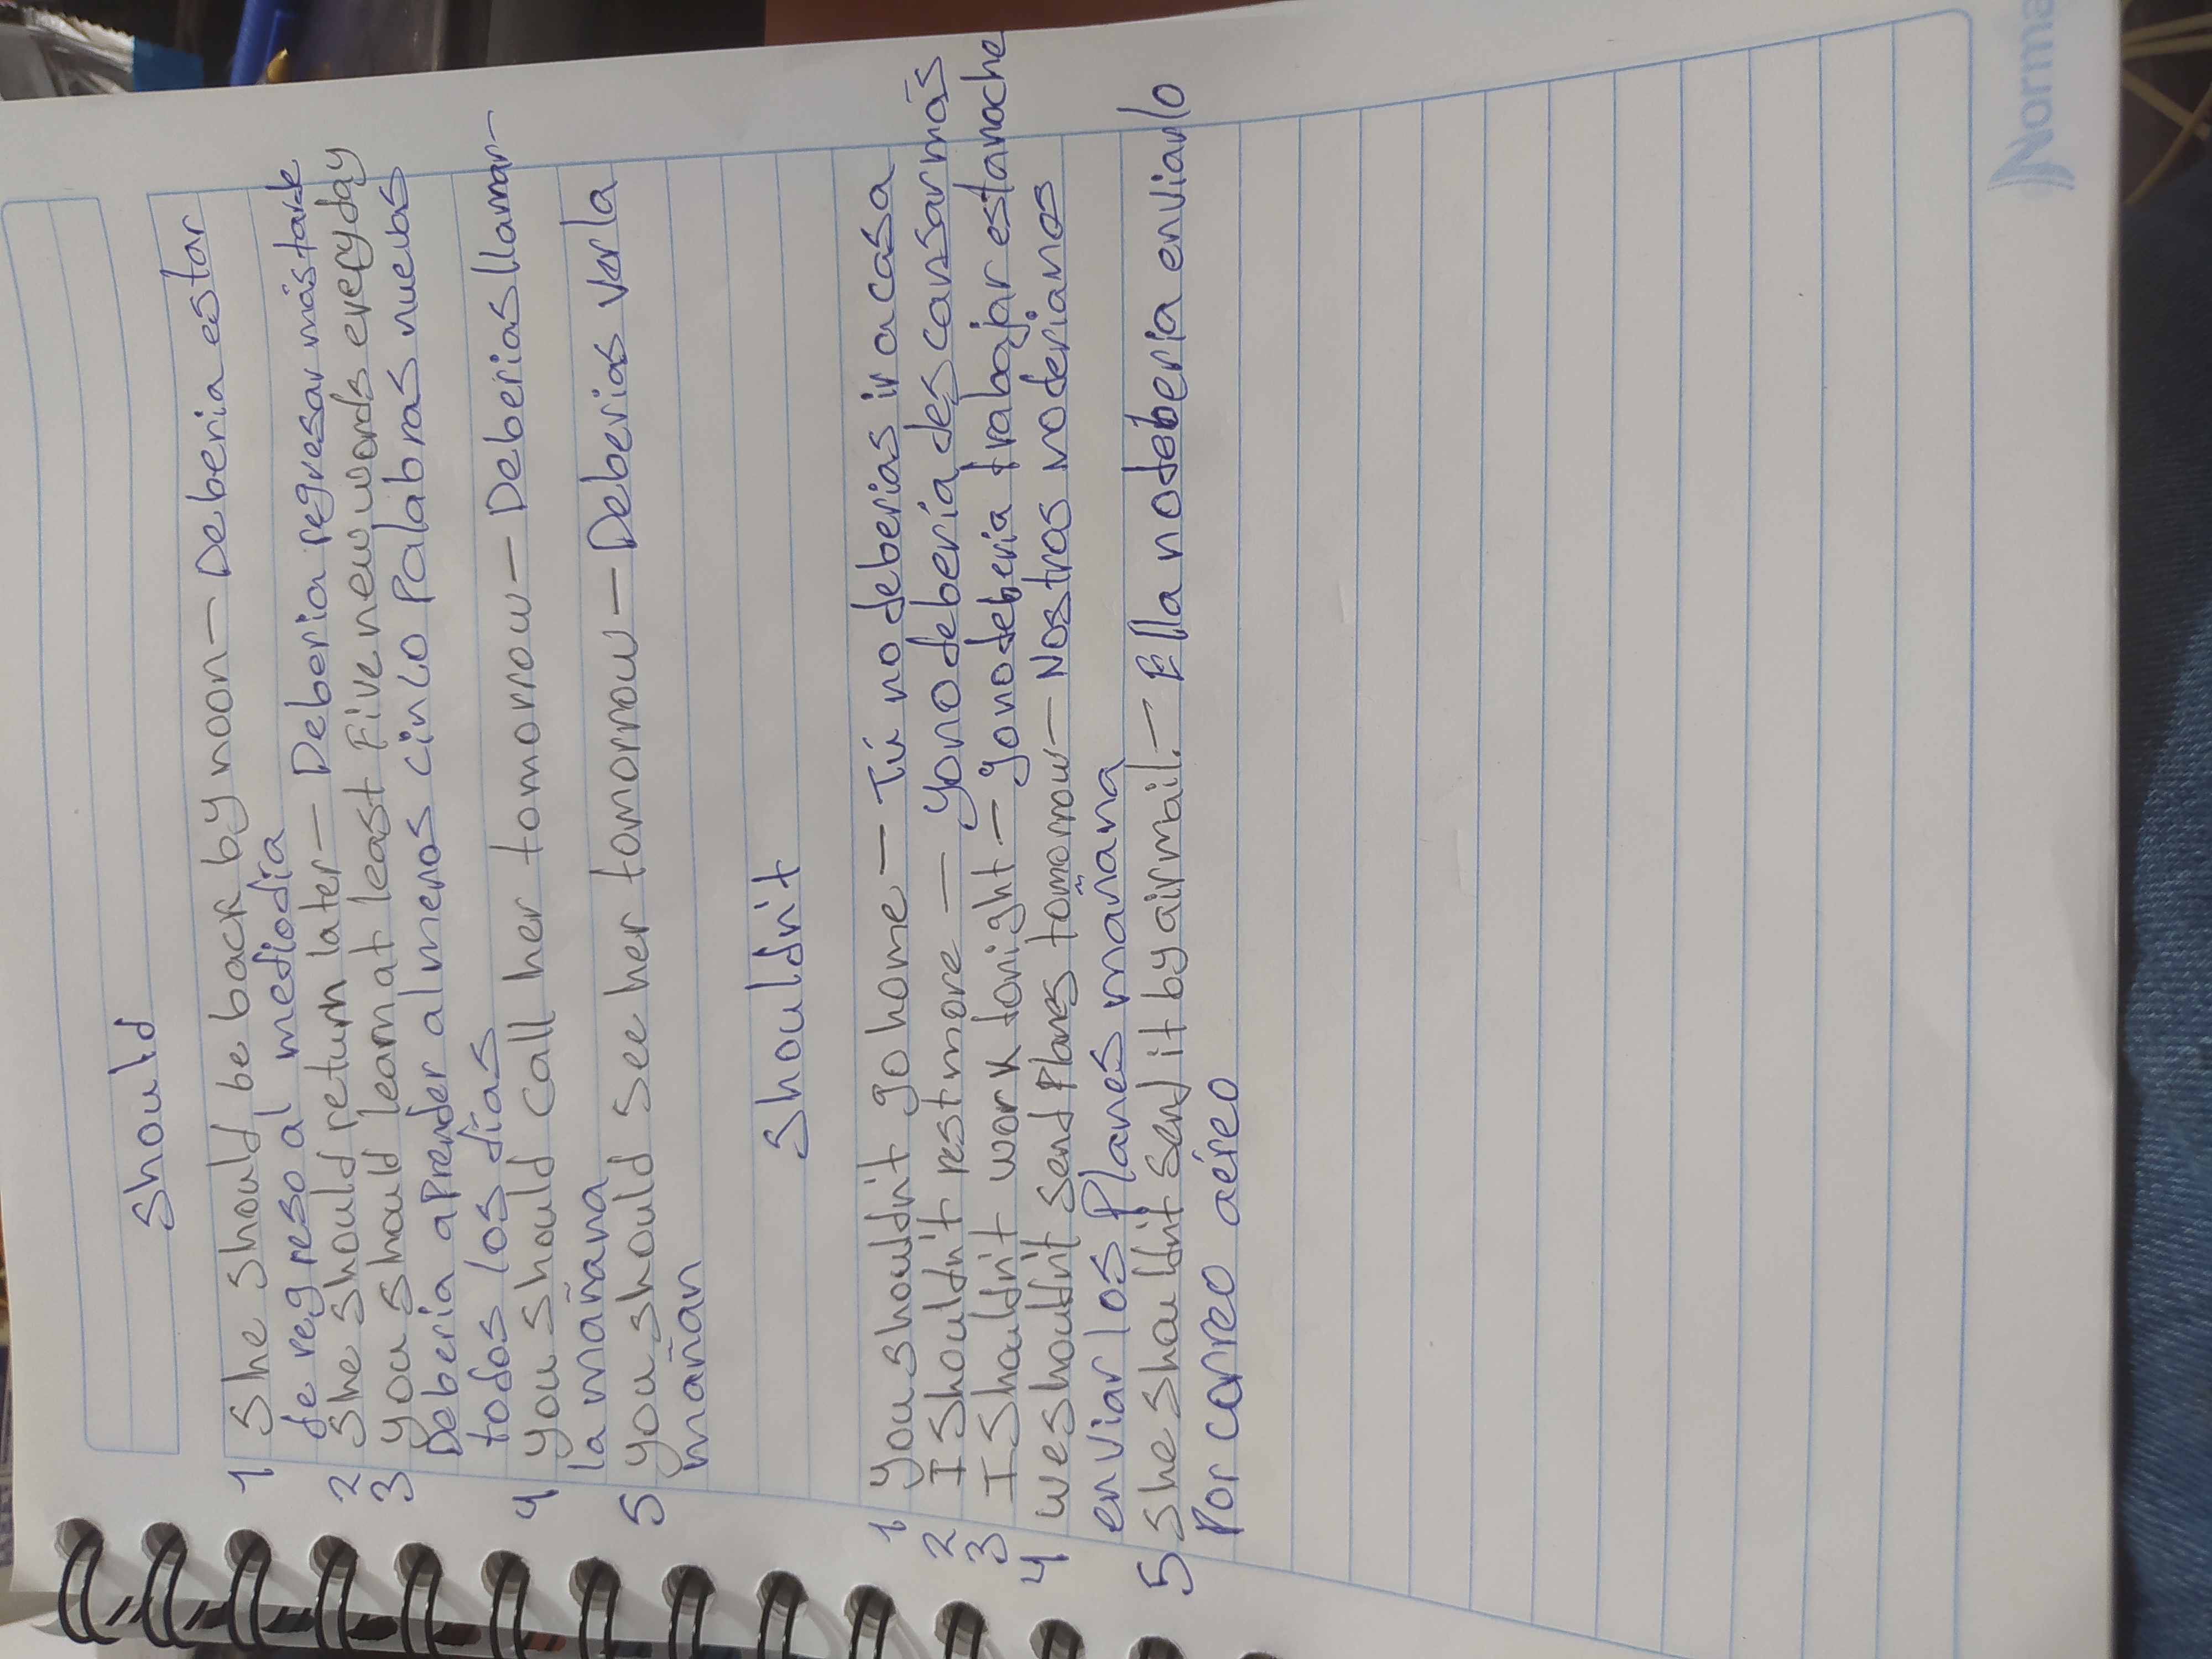 Should
1 She should be back by noon - Deberia estar
de regreso al mediodía
2 She should return later - Deberia regresar más tarde
3 you should learn at least Five new words every day
Deberia aprender al menos cinco Palabras nuevas
todos los días
4 you should call her tomorrow - Deberias llamar-
la mañana
5 you should see her tomorrow - Deberias verla
mañan
Shouldn't
1 you shouldn't go home - Tú no deberias ir a casa
2 I shouldn't rest more - yo no debería descansar más
3 I shouldn't work tonight - yo no deberia trabajar esta noche
4 we shouldn't send Plans tomorrow - Nostros no deriamos
enviar los Planes mañana
5 She shouldn't send it by airmail. - Ella no deberia enviarlo
Por correo aéreo
Norma